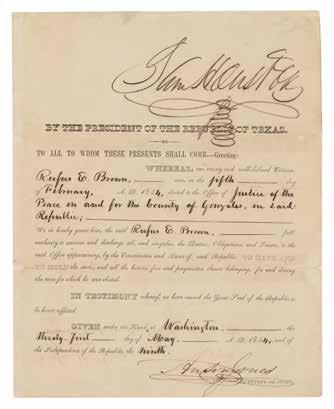 Sam Houston
BY THE PRESIDENT OF THE REPUBLIC OF TEXAS.
TO
TO ALL TO WHOM THESE PRESENTS SHALL COME—Greeting:
WHEREAS, our
Rufus E. Brown, was, on the fifth day
of February, A. D. 1844, elected to the Office of Justice of the
Peace in and for the County of Gonzales, in said
Republic;
We do hereby give him, the said Rufus E. Brown, full
authority to exercise and discharge all, and singular, the Duties, Obligations, and Trusts, to the
said Office appertaining, by the Constitution and Laws of said Republic. TO HAVE AND
TO HOLD the same, and all the honors, fees and perquisites thereto belonging, for and during
the term for which he was elected.
IN TESTIMONY whereof, we have caused the Great Seal of the Republic to
be hereto affixed.
GIVEN under my Hand, at Washington, the
thirty-first day of May, A. D. 1844, and of
the Independence of the Republic, the Ninth.
Anson Jones
SECRETARY OF STATE.